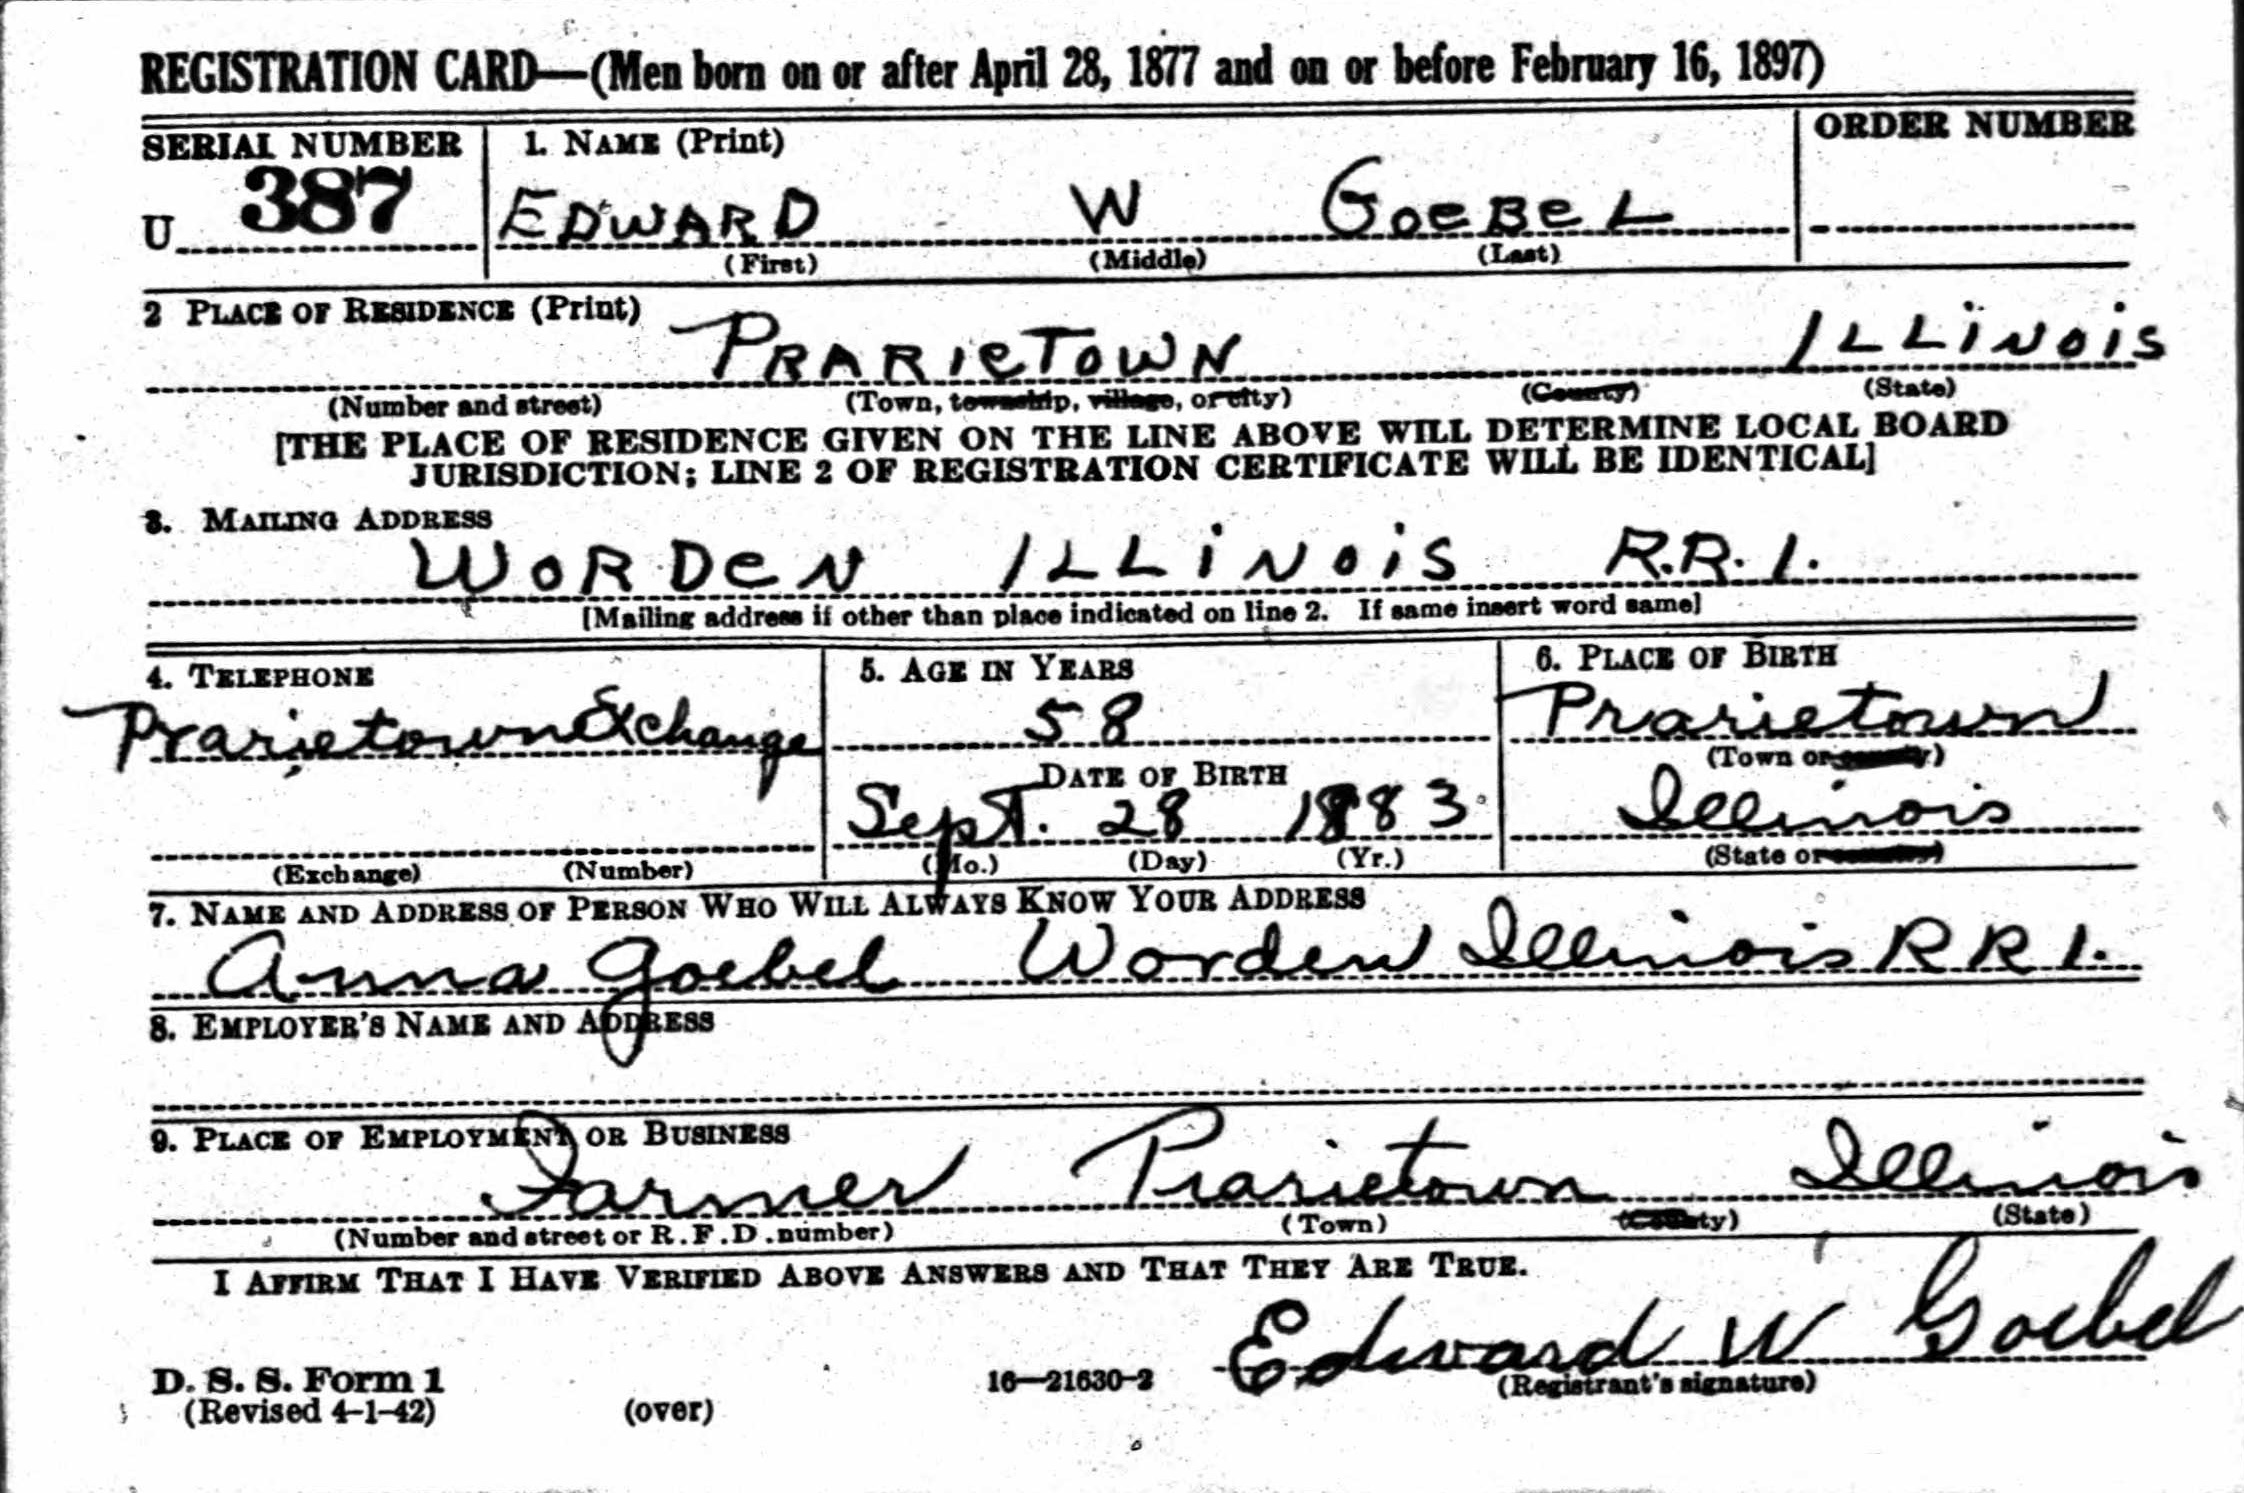 REGISTRATION CARD—(Men born on or after April 28, 1877 and on or before February 16, 1897)
SERIAL NUMBER
1. NAME (Print)
ORDER NUMBER
U 387
EDWARD W GOEBEL
(First) (Middle) (Last)
2 PLACE OF RESIDENCE (Print)
PRARIETOWN ILLINOIS
(Number and street) (Town, township, village, or city) (County) (State)
[THE PLACE OF RESIDENCE GIVEN ON THE LINE ABOVE WILL DETERMINE LOCAL BOARD
JURISDICTION; LINE 2 OF REGISTRATION CERTIFICATE WILL BE IDENTICAL]
3. MAILING ADDRESS
WORDEN ILLINOIS R.R. 1.
[Mailing address if other than place indicated on line 2. If same insert word same]
4. TELEPHONE
Prarietown Exchange
(Exchange) (Number)
5. AGE IN YEARS
58
DATE OF BIRTH
Sept. 28 1883
(Mo.) (Day) (Yr.)
6. PLACE OF BIRTH
Prarietown
(Town or county)
Illinois
(State or country)
7. NAME AND ADDRESS OF PERSON WHO WILL ALWAYS KNOW YOUR ADDRESS
Anna Goebel Worden Illinois R R 1.
8. EMPLOYER'S NAME AND ADDRESS
9. PLACE OF EMPLOYMENT OR BUSINESS
Farmer Prarietown Illinois
(Number and street or R. F. D. number) (Town) (County) (State)
I AFFIRM THAT I HAVE VERIFIED ABOVE ANSWERS AND THAT THEY ARE TRUE.
Edward W Goebel
(Registrant's signature)
D. S. S. Form 1
(Revised 4-1-42) (over) 16—21630-2